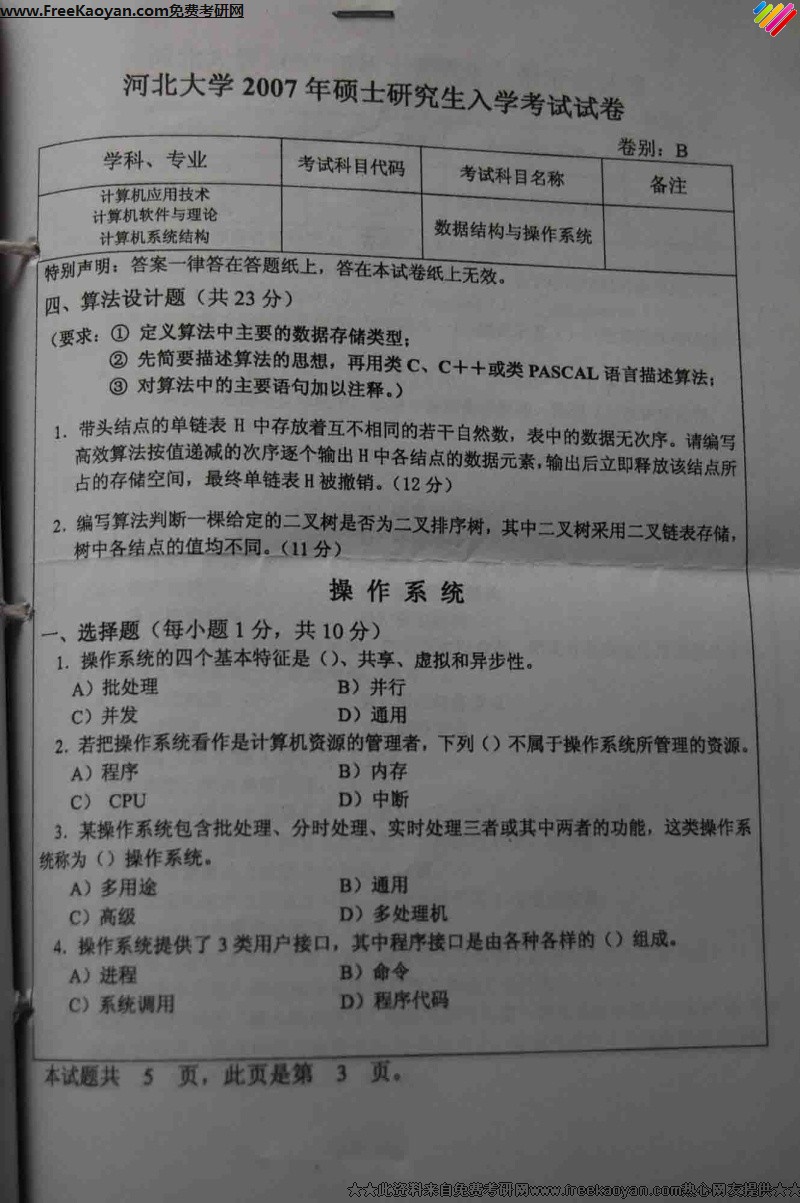 www.FreeKaoyan.com免费考研网
河北大学 2007 年硕士研究生入学考试试卷
卷别：B
学科、专业 考试科目代码 考试科目名称 备注
计算机应用技术
计算机软件与理论
计算机系统结构
数据结构与操作系统
特别声明：答案一律答在答题纸上，答在本试卷纸上无效。
四、算法设计题（共 23 分）
（要求：① 定义算法中主要的数据存储类型；
② 先简要描述算法的思想，再用类 C、C＋＋或类 PASCAL 语言描述算法；
③ 对算法中的主要语句加以注释。）
1. 带头结点的单链表 H 中存放着互不相同的若干自然数，表中的数据无次序。请编写
高效算法按值递减的次序逐个输出 H 中各结点的数据元素，输出后立即释放该结点所
占的存储空间，最终单链表 H 被撤销。（12 分）
2. 编写算法判断一棵给定的二叉树是否为二叉排序树，其中二叉树采用二叉链表存储，
树中各结点的值均不同。（11 分）
操 作 系 统
一、选择题（每小题 1 分，共 10 分）
1. 操作系统的四个基本特征是（）、共享、虚拟和异步性。
A）批处理 B）并行
C）并发 D）通用
2. 若把操作系统看作是计算机资源的管理者，下列（）不属于操作系统所管理的资源。
A）程序 B）内存
C） CPU D）中断
3. 某操作系统包含批处理、分时处理、实时处理三者或其中两者的功能，这类操作系
统称为（）操作系统。
A）多用途 B）通用
C）高级 D）多处理机
4. 操作系统提供了 3 类用户接口，其中程序接口是由各种各样的（）组成。
A）进程 B）命令
C）系统调用 D）程序代码
本试题共 5 页，此页是第 3 页。
☆☆此资料来自免费考研网www.freekaoyan.com热心网友提供☆☆